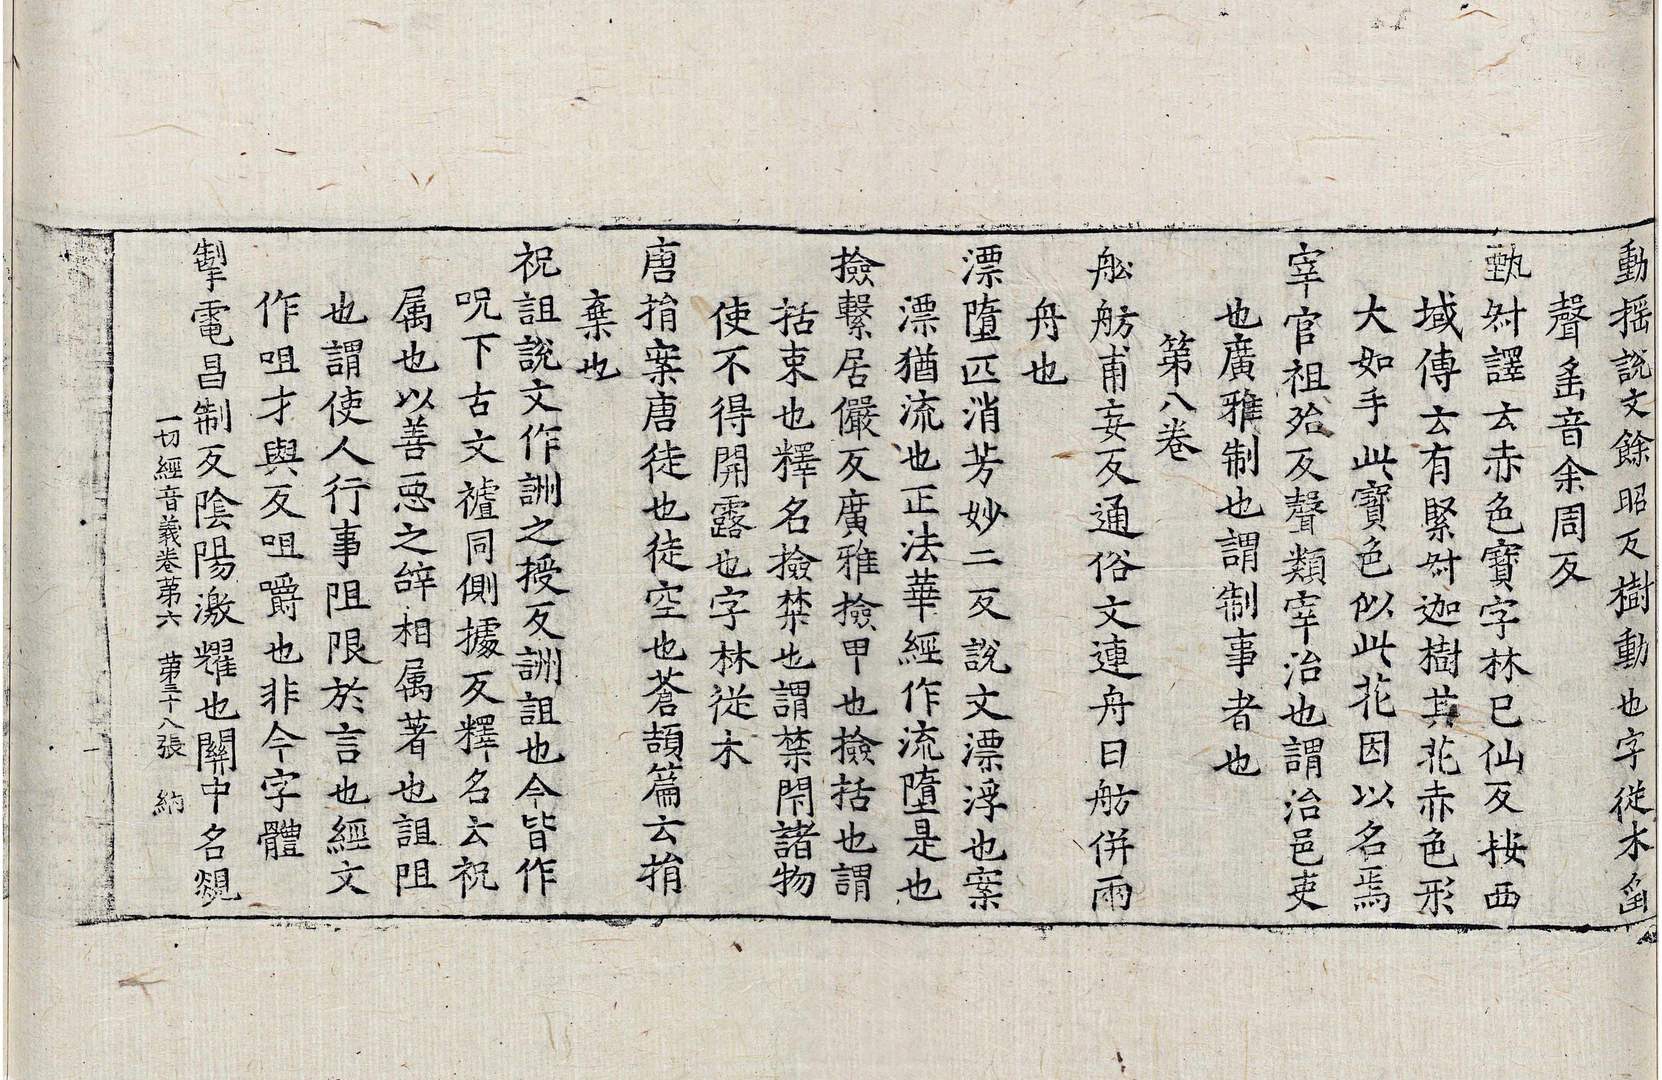 動揺說文餘昭反樹動也字從木䍃
聲䍃音余周反
甄叔譯云赤色寶字林巳仙反按西
域傳云有緊叔迦樹其花赤色形
大如手此寶色似此花因以名焉
宰官祖殆反聲類宰治也謂治邑吏
也廣雅制也謂制事者也
第八卷
舩舫甫妄反通俗文連舟曰舫併兩
舟也
漂墮匹消芳妙二反說文漂浮也案
漂猶流也正法華經作流墮是也
撿繫居儼反廣雅撿甲也撿括也謂
括束也釋名撿禁也謂禁閇諸物
使不得開露也字林從木
唐捐案唐徒也徒空也蒼頡篇云捐
棄也
祝詛說文作詶之授反詶詛也今皆作
呪下古文禇同側據反釋名云祝
属也以善惡之辝相属著也詛阻
也謂使人行事阻限於言也經文
作咀才與反咀嚼也非今字體
掣電昌制反陰陽激耀也關中名覢
一切經音義卷苐六 苐三十八張 納